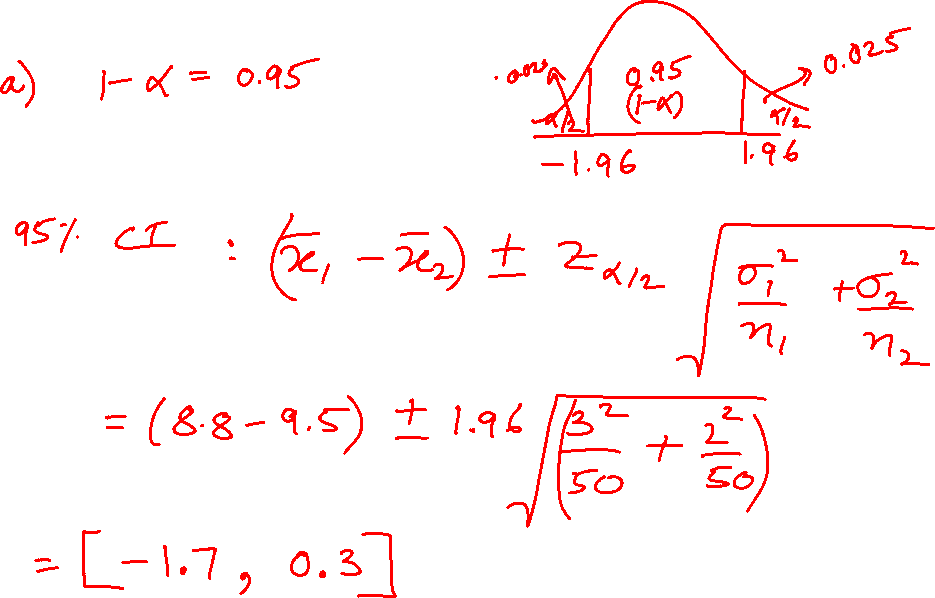 a) 1-α = 0.95
0.95
(1-α)
0.025
α/2
α/2
-1.96
1.96
95% CI : (x̄₁ - x̄₂) ± z_α/2 √(σ₁²/n₁ + σ₂²/n₂)
= (8.8 - 9.5) ± 1.96 √(3²/50 + 2²/50)
= [-1.7, 0.3]